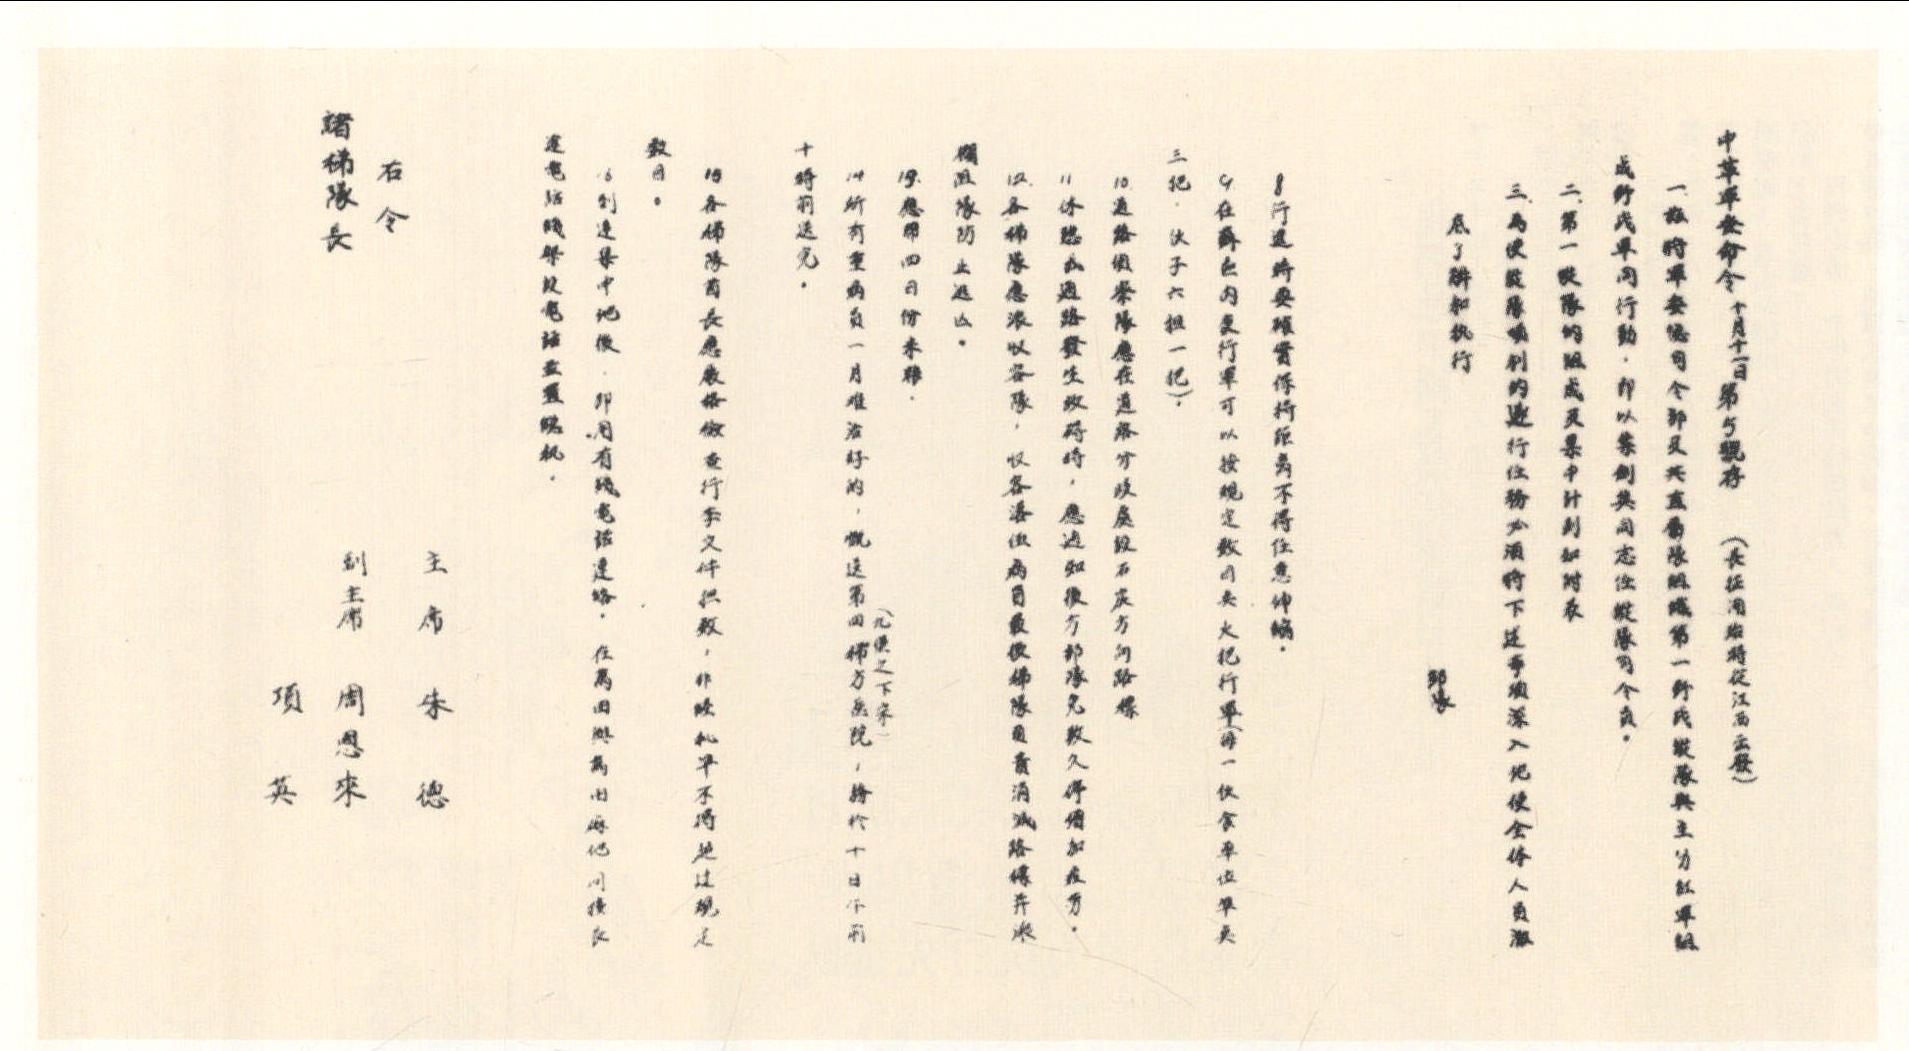 中革軍委命令 十月十一日 第5號存 (長征開始時從江西出發)
一、茲將軍委總司令部及其直屬隊組織第一野战縱隊與主力紅軍組
成野战軍同行動，即以葉劍英同志任縱隊司令員。
二、第一縱隊的組成及集中計劃如附表
三、為使縱隊順利的進行任務必須將下述事項深入地使全体人員澈
底了解和执行
部隊
8行進時要確實保持距离不得任意伸縮。
9.在蘇區內夜行軍可以按規定数目夹火把行軍(每一伙食单位单夹
三把，伙子六担一把)。
10道路偵察隊應在道路分歧處設石灰方向路標
11休憩或道路發生故碍時，應通知後方部隊免致久停增加疲劳。
12.各梯隊應派收容隊，收容落伍病員最後梯隊負責消滅路標并派
攔阻隊防止逃亡。
13.應帶四日份米糧.
14所有重病員一月难治好的，概送第四梯方医院，務於十日下前
十時前送完。
15各梯隊首長應嚴格檢查行李文件担数，非經批准不得超过規定
数目。
16到達集中地後，即用有綫電話連絡，在 田
電話綫架設電話 机。
右令
諸梯隊長
主席 朱德
副主席 周恩來
項英